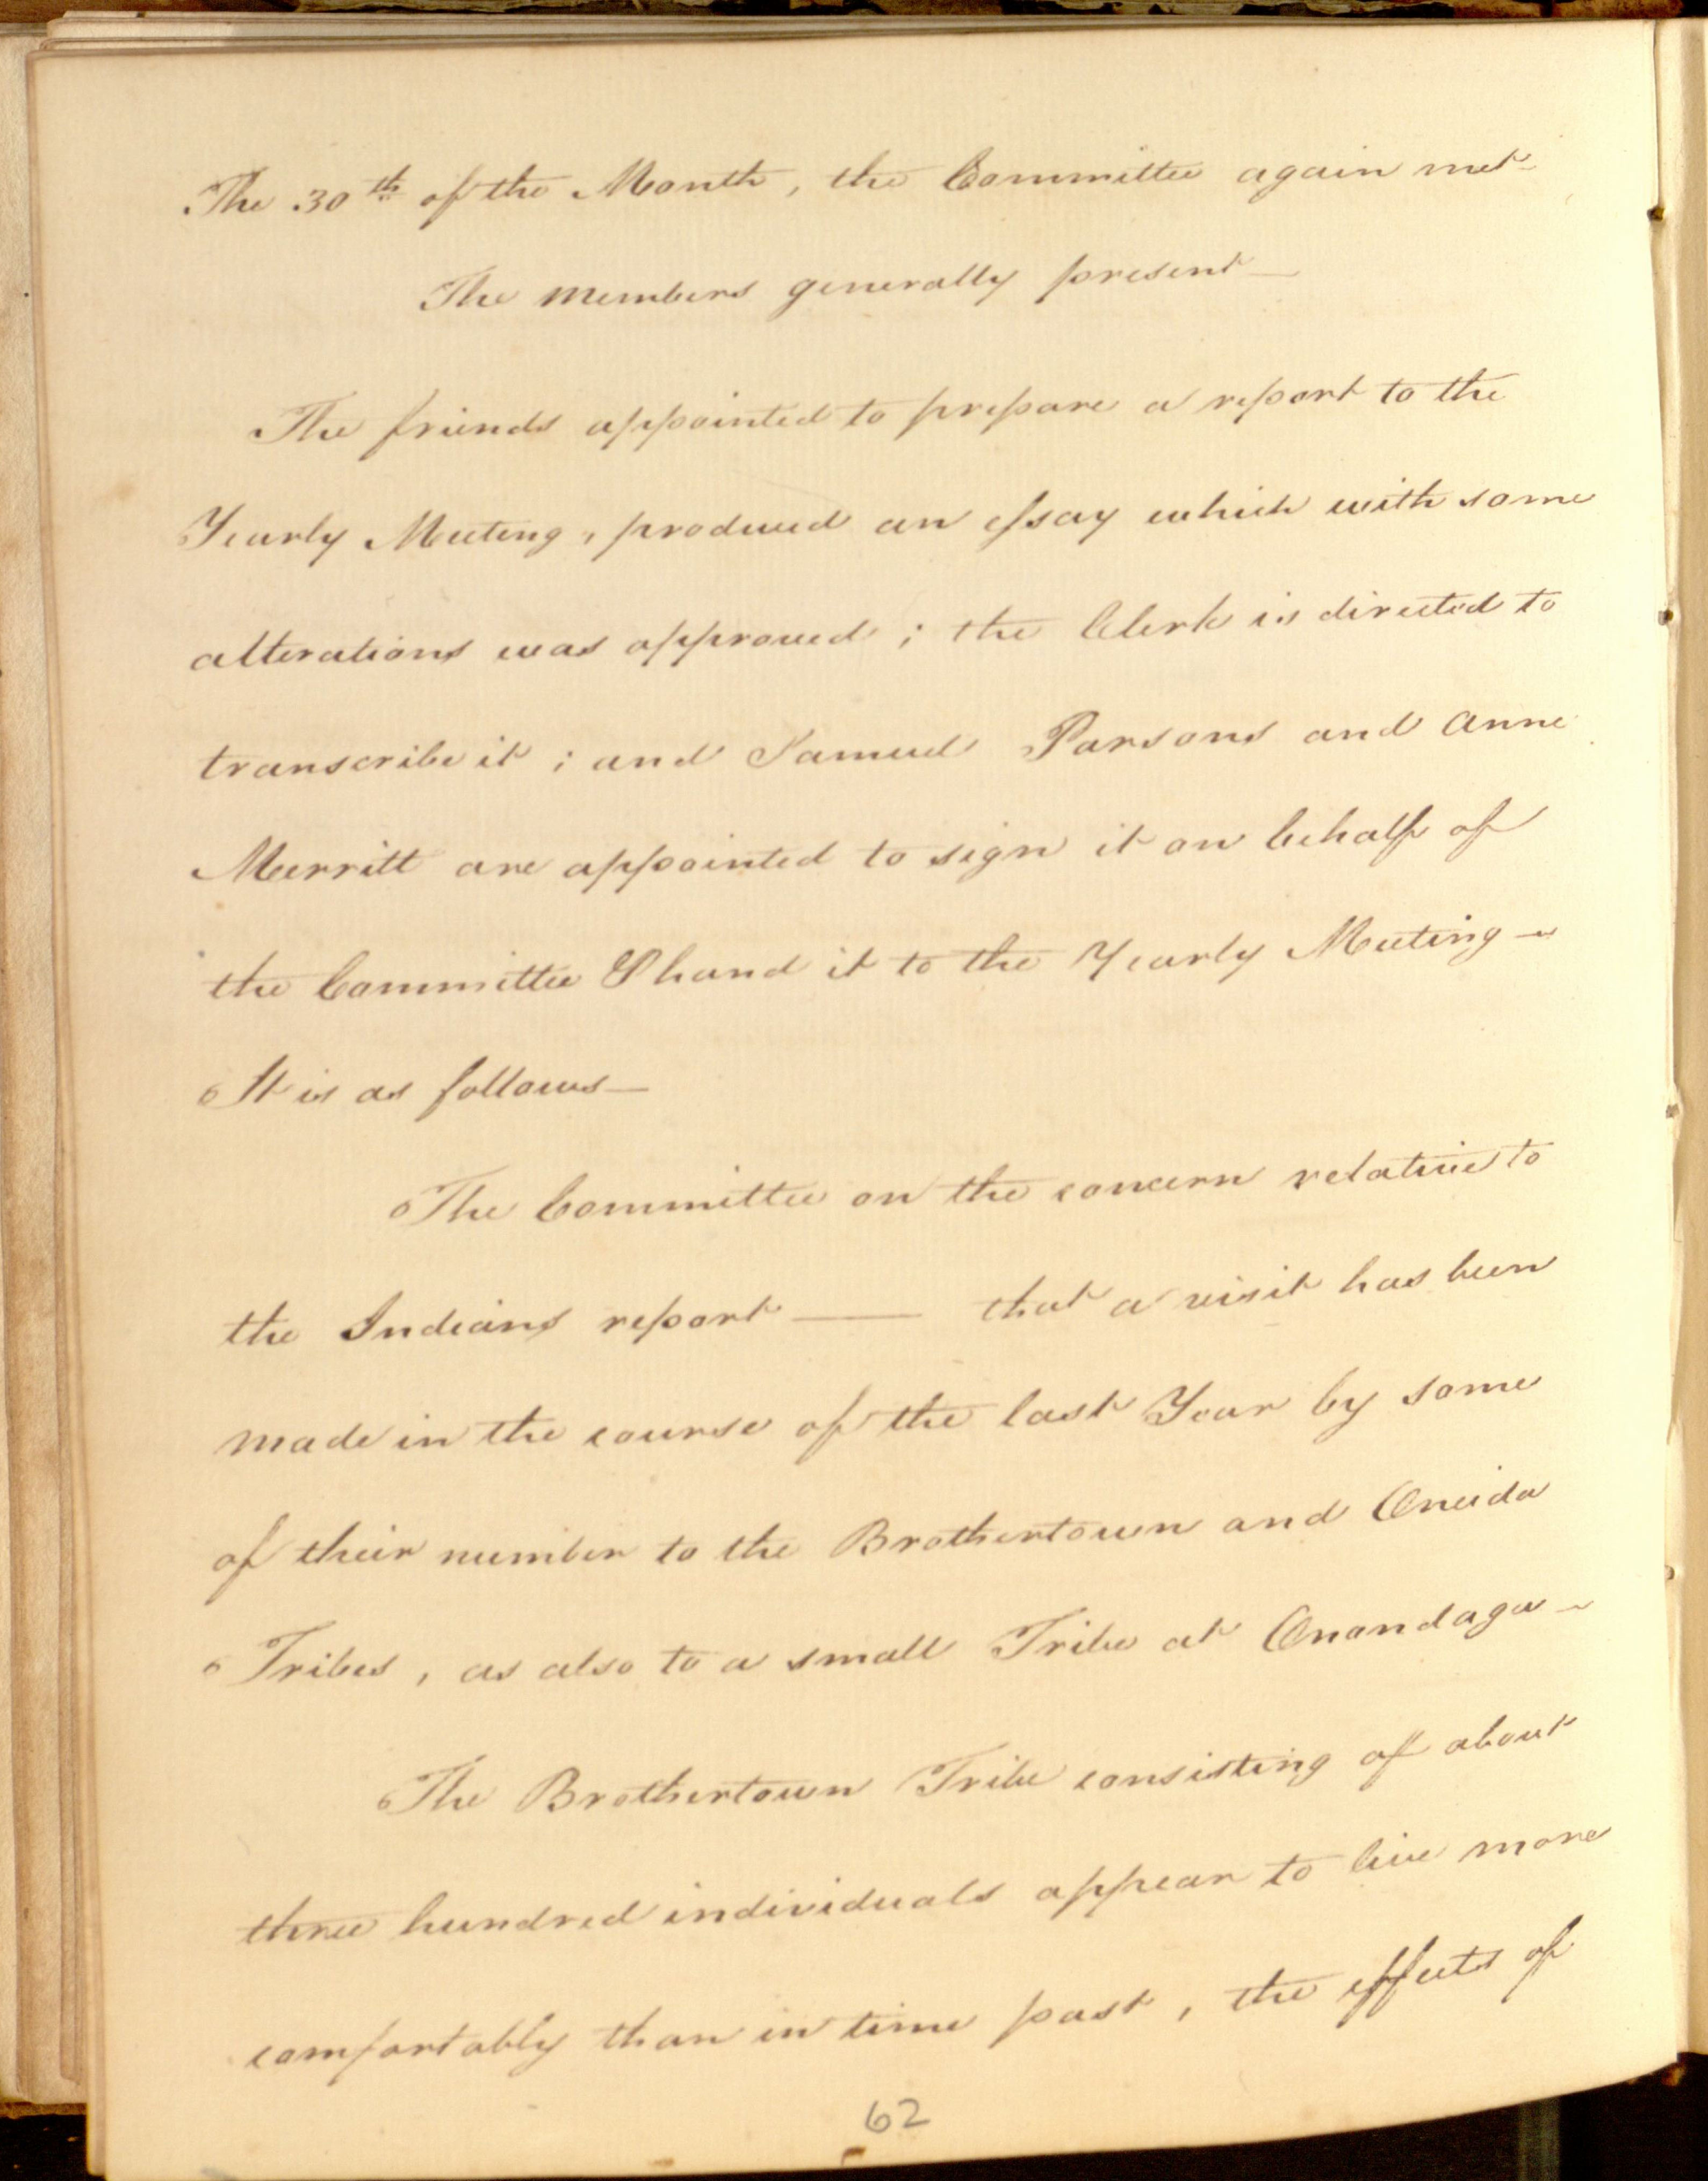 The 30th of the Month, the Committee again met
The members generally present—
The friends appointed to prepare a report to the
Yearly Meeting, produced an essay which with some
alterations was approved; the Clerk is directed to
transcribe it; and Samuel Parsons and Anne
Merritt are appointed to sign it on behalf of
the Committee & hand it to the Yearly Meeting—
It is as follows—
The Committee on the concern relative to
the Indians report —— that a visit has been
made in the course of the last Year by some
of their number to the Brothertown and Oneida
Tribes, as also to a small Tribe at Onondaga—
The Brothertown Tribe consisting of about
three hundred individuals appear to live more
comfortably than in time past, the effects of
62